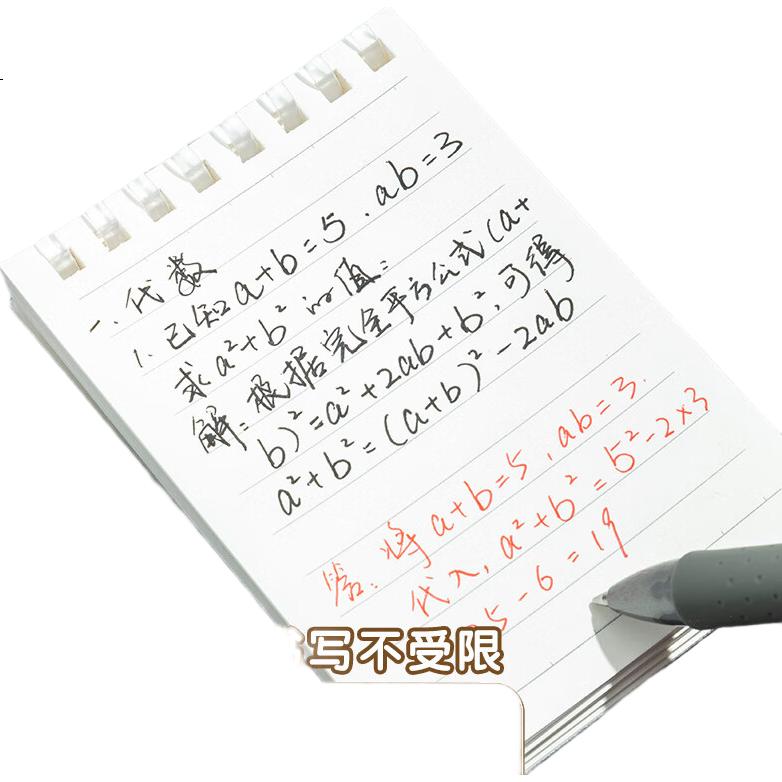 一、代数
1. 已知a+b=5，ab=3
求a²+b²的值：
解：根据完全平方公式(a+
b)²=a²+2ab+b²，可得
a²+b²=(a+b)²-2ab
答：将a+b=5，ab=3.
代入，a²+b²=5²-2×3
5-6=19
写不受限